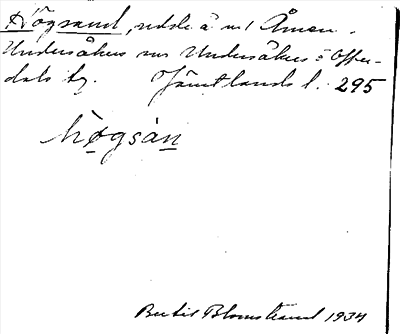 Högsand, udde å n/ Ånen.
Undersåkers sn Undersåkers o Offer-
dals tg. Jämtlands l. 295
högsàn
Bertil Blomstrand 1934